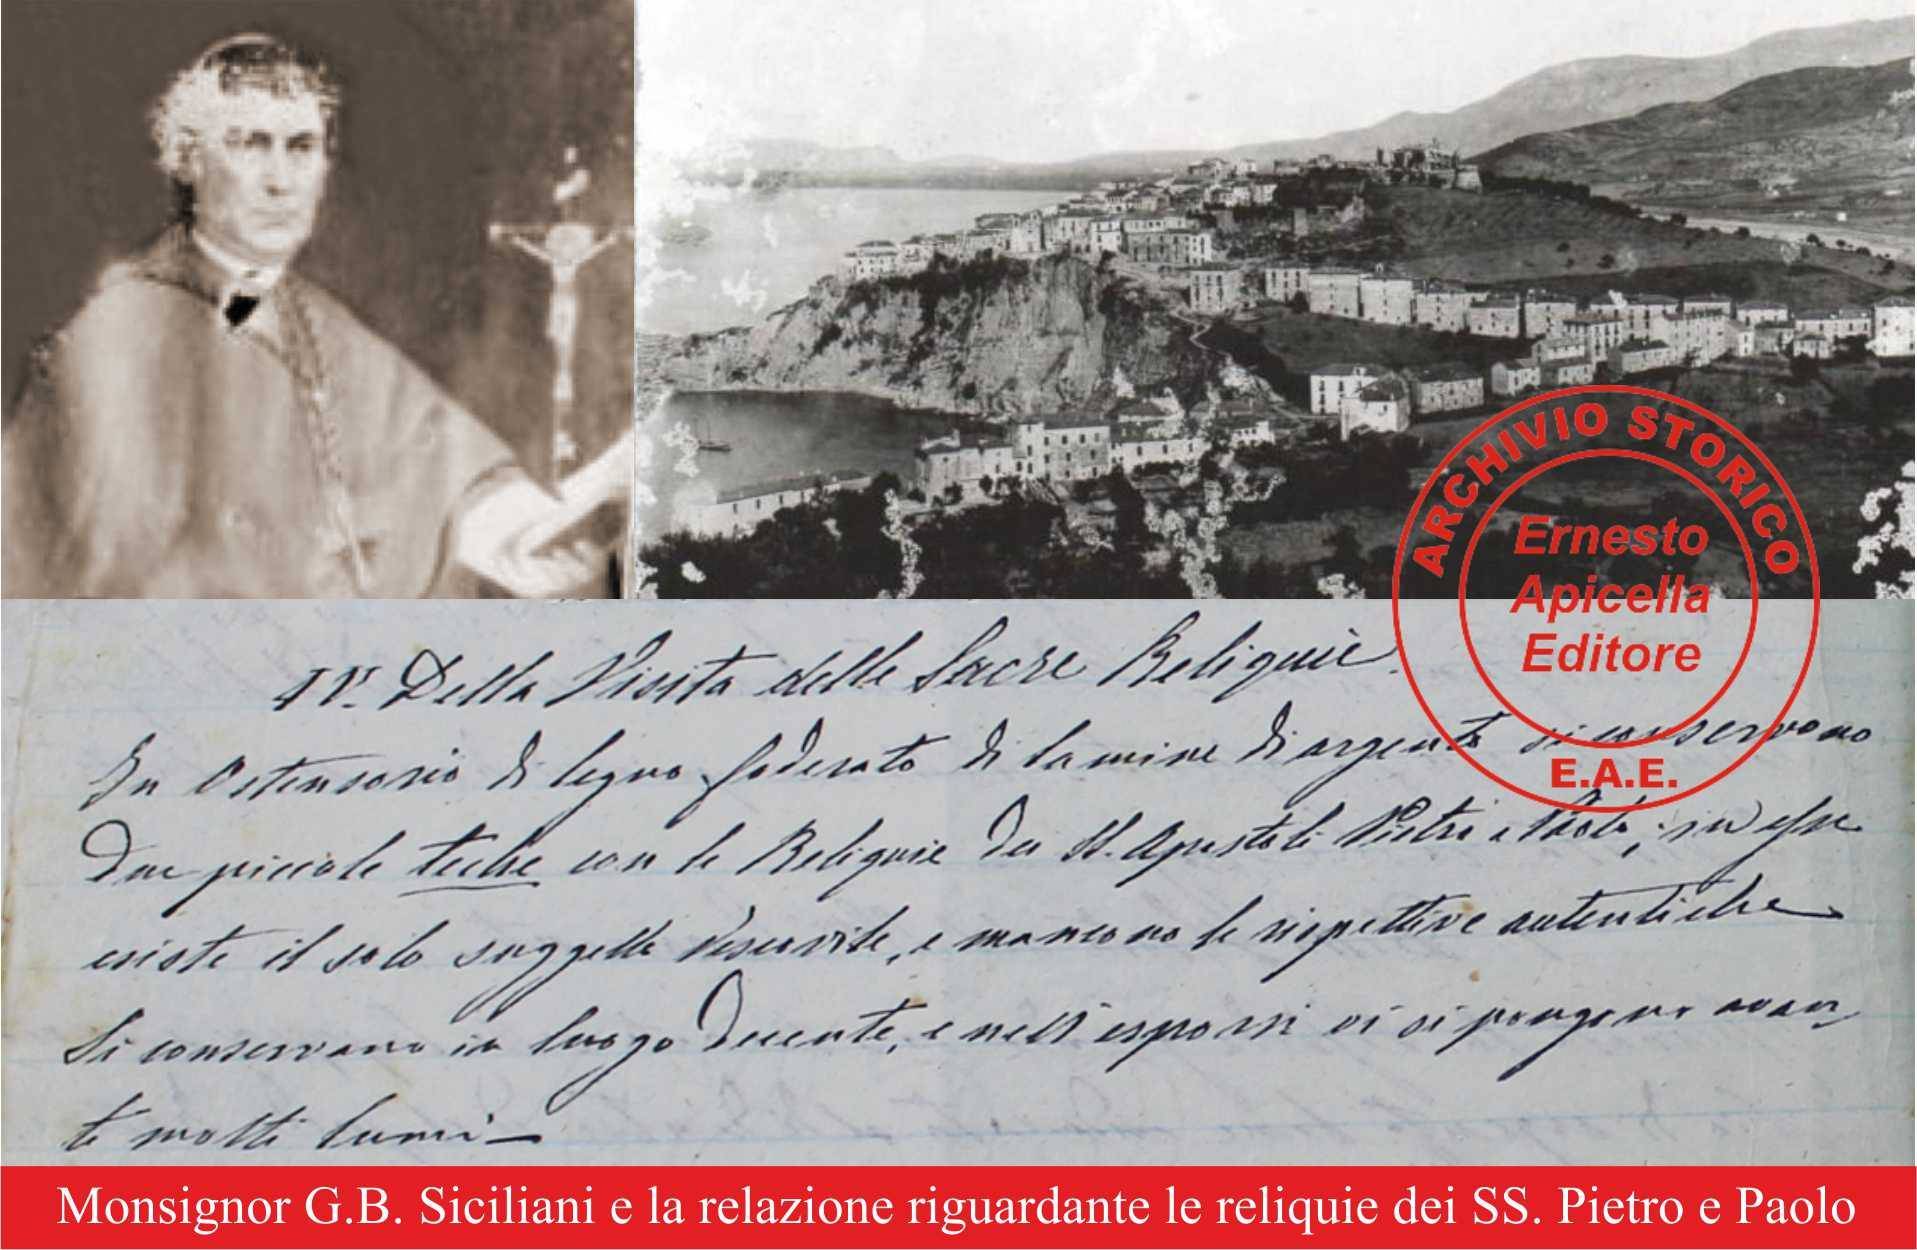 ARCHIVIO STORICO
Ernesto
Apicella
Editore
E.A.E.
IV. Della Visita delle Sacre Reliquie.
In Ostensorio di legno foderato di lamine di argento si conservono
due piccole teche con le Reliquie dei SS. Apostoli Pietro e Paolo; in esse
esiste il solo suggello Vescovile, e mancono le rispettive autentiche
Si conservano in luogo decente, e nell'esporsi vi si pongono avan
ti molti lumi—
Monsignor G.B. Siciliani e la relazione riguardante le reliquie dei SS. Pietro e Paolo